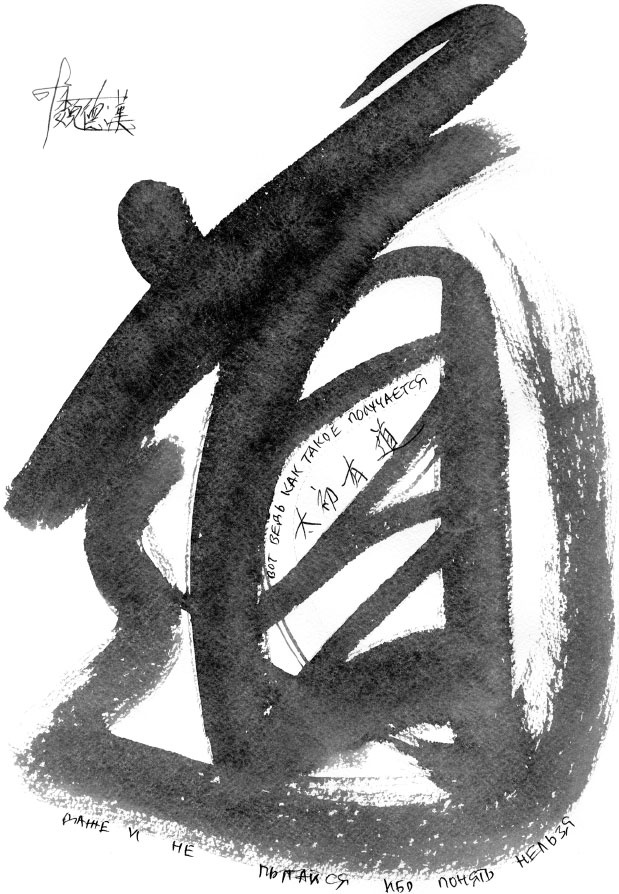 魏德漢
道
ВОТ ВЕДЬ КАК ТАКОЕ ПОЛУЧАЕТСЯ
太初有道
ДАЖЕ И НЕ ПЫТАЙСЯ ИБО ПОНЯТЬ НЕЛЬЗЯ